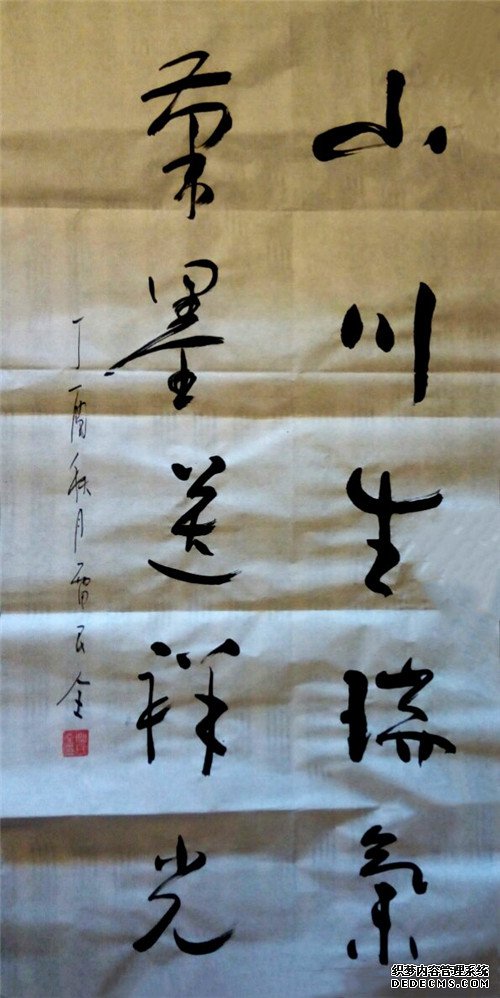 山川生瑞氣
筆墨送祥光
丁酉秋月雷
织梦内容管理系统
DEDECMS.COM